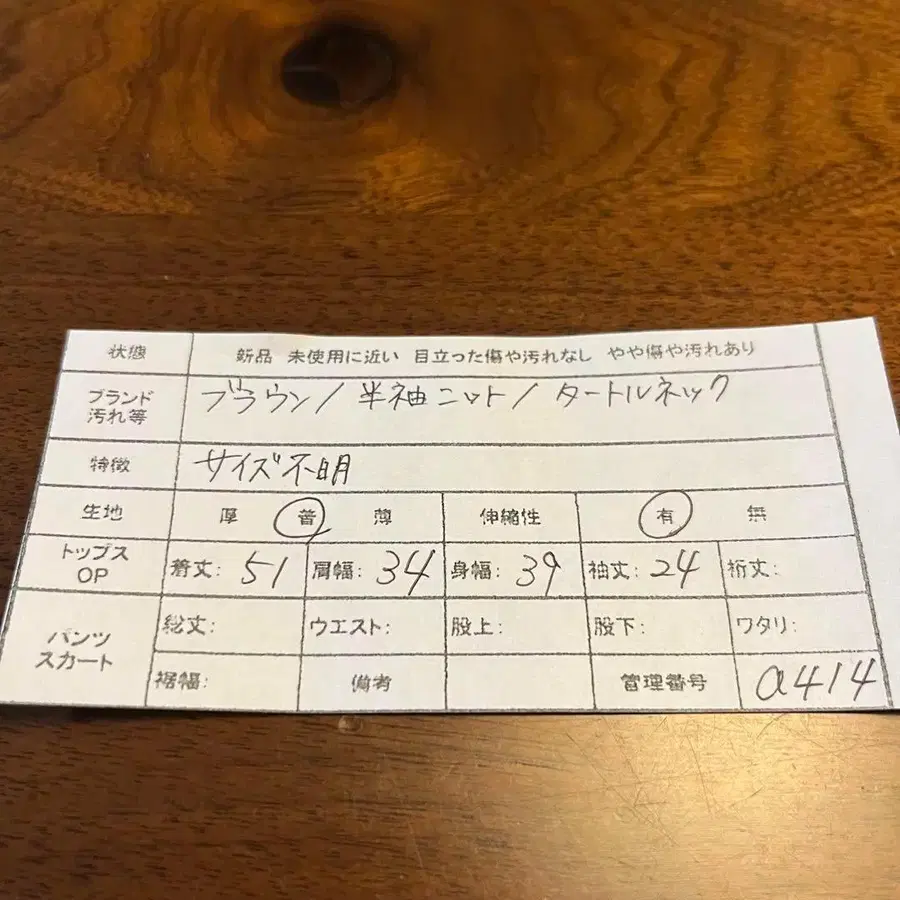 状態 新品 未使用に近い 目立った傷や汚れなし やや傷や汚れあり
ブランド 汚れ等 ブラウン/半袖ニット/タートルネック
特徴 サイズ不明
生地 厚 普 薄 伸縮性 有 無
トップス OP 着丈: 51 肩幅: 34 身幅: 39 袖丈: 24 裄丈:
パンツ スカート 総丈: ウエスト: 股上: 股下: ワタリ:
裾幅: 備考 管理番号 a414